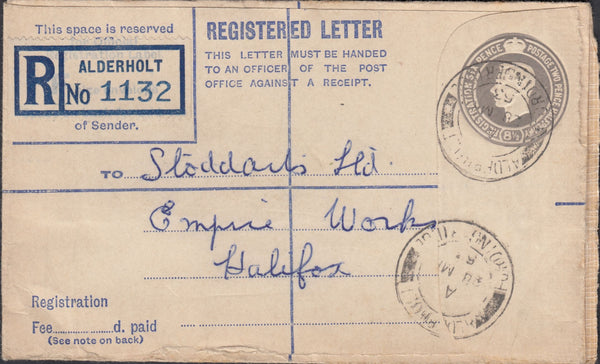 This space is reserved
R ALDERHOLT
No 1132
of Sender.
REGISTERED LETTER
THIS LETTER MUST BE HANDED
TO AN OFFICER OF THE POST
OFFICE AGAINST A RECEIPT.
POSTAGE TWO PENCE
REGISTRATION
8½
TO Stoddarts Ltd.
Empire Works
Halifax
Registration
Fee d. paid
(See note on back)